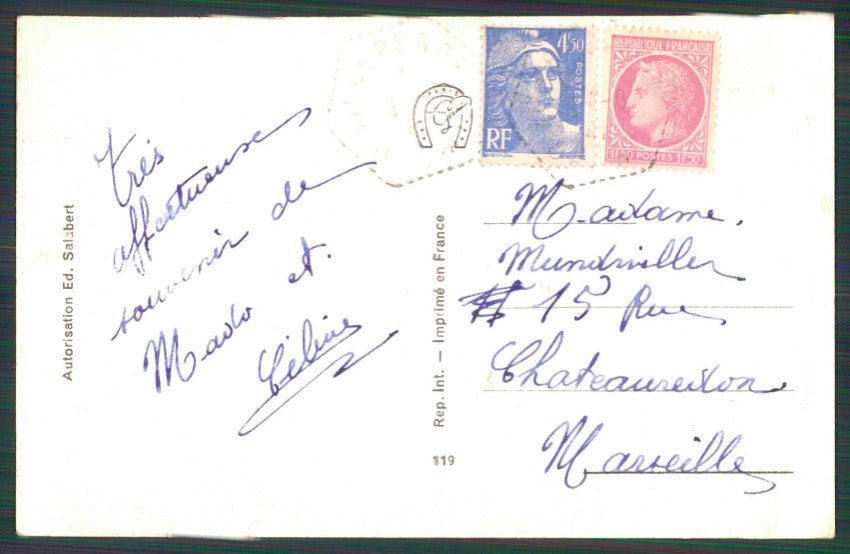 Très
affectueux
souvenir de
Mado et
Céline
Autorisation Ed. Salabert
Rep. Int. — Imprimé en France
119
PARIS
G
4f50
POSTES
RF
REPUBLIQUE FRANÇAISE
1F50 POSTES 1F50
Madame.
Mundviller
15 Rue
Chateauredon
Marseille